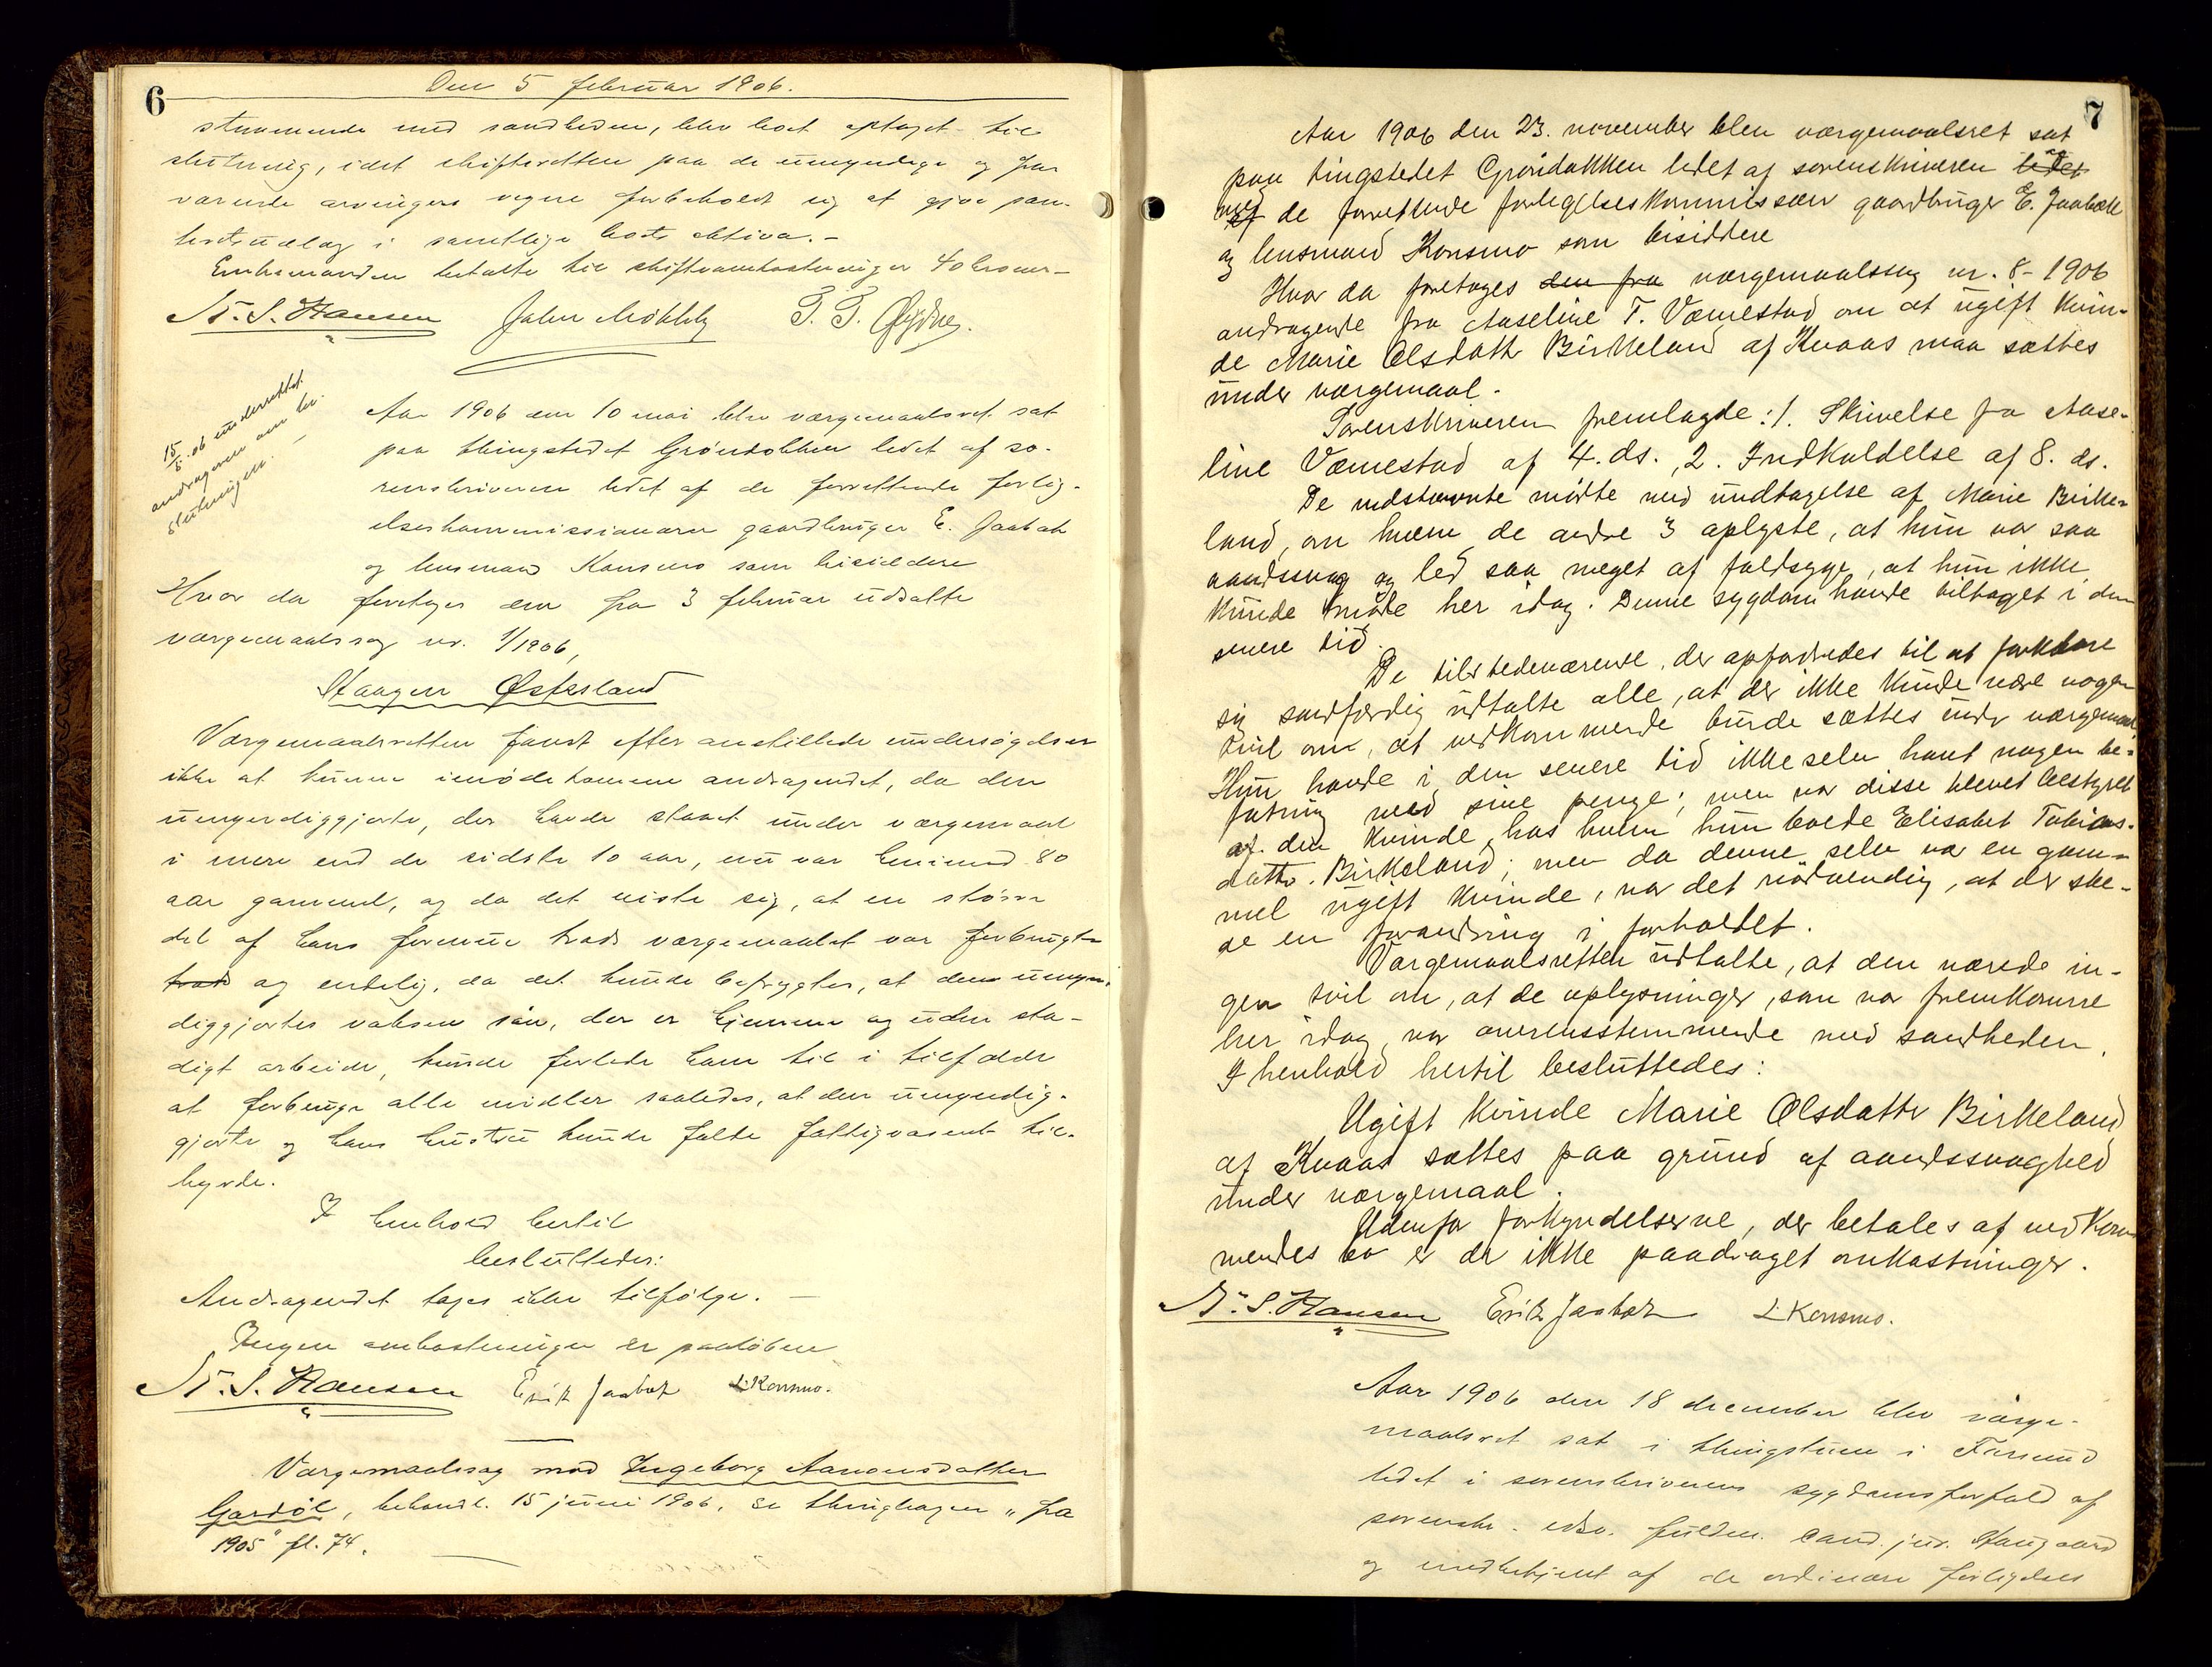 6
Den 5 februar 1906.
stemmende med sandheden, blev boet optaget til
slutning, idet skifteretten paa de umyndige og fra
værende arvingers vegne forbeholdt sig at gjøre pan-
terets udlæg i samtlige boets aktiva.-
Enkemanden betalte til skifteomkostninger 40 kroner-
N. S. Hansen
T. T. Øydne.
15/5.06 underrettet
andrageren om be-
slutningen.
Aar 1906 den 10 mai blev værgemaalsret sat
paa thingstedet Grøndokken ledet af so-
renskriveren ledet af de forrettende forlig-
elseskommissionærer gaardbruger E. Jaabæk
og lensmand Konsmo som bisiddere
Hvor da foretages den fra 3 februar udsatte
værgemaalssag nr. 1/1906,
Haagen Østesland
Værgemaalsretten fandt efter anstillede undersøgelser
ikke at kunne imødekomme andragendet, da den
umyndiggjorte, der havde staaet under værgemaal
i mere end de sidste 10 aar, nu var henimod 80
aar gammel, og da det viste sig, at en større
del af hans formue trods værgemaalet var forbrugt
trods og endelig, da det kunde befrygtes, at den umyn-
diggjortes voksne søn, der er hjemme og uden sta-
digt arbeide, kunde forlede ham til i tilfælde
at forbruge alle midler saaledes, at den umyndig-
gjorte og hans hustru kunde falde fattigvæsenet til-
byrde.
I henhold hertil
besluttedes:
Andragendet tages ikke tilfølge. —
Ingen omkostninger er paaløbne
N. S. Hansen Erik Jaabæk L. Konsmo.
Værgemaalssag mod Ingeborg Aanonsdatter
Gardøl, behandl. 15 juni 1906, se thingbogen „fra
1905" fl. 74.
7
Aar 1906 den 23. november blev værgemaalsret sat
paa tingstedet Grøndokken ledet af sorenskriveren ledet
med af de forrettende forlegelseskommissærer gaardbruger E. Jaabæk
og lensmand Konsmo som bisiddere
Hvor da foretages den fra værgemaalssag nr. 8-1906
andragende fra Aaseline T. Væmestad om at ugift kvin-
de Marie Olsdatter Birkeland af Kvaas maa sættes
under værgemaal.
Sorenskriveren fremlagde: 1. Skrivelse fra Aase-
line Væmestad af 4. ds., 2. Indkaldelse af 8. ds.
De indstævnte mødte med undtagelse af Marie Birke-
land, om hvem de andre 3 oplyste, at hun var saa
aandssvag og led saa meget af faldsyge, at hun ikke
kunde møde her idag. Denne sygdom havde tiltaget i den
senere tid.
De tilstedeværende, der opfordredes til at forklare
sig sandfærdig udtalte alle, at der ikke kunde være nogen
tvil om, at vedkommende burde sættes under værgemaal,
Hun havde i den senere tid ikke selv havt nogen be-
fatning med sine penge; men var disse blevet bestyret
af den kvinde, hos hvem hun boede Elisabet Tobias-
datter Birkeland; men da denne selv var en gam-
mel ugift kvinde, var det nødvendig, at der ske-
de en forandring i forholdet.
Værgemaalsretten udtalte, at den nærede in-
gen tvil om, at de oplysninger, som var fremkomne
her idag, var overensstemmende med sandheden.
I henhold hertil besluttedes:
Ugift kvinde Marie Olsdatter Birkeland
af Kvaas sættes paa grund af aandssvaghed
under værgemaal.
Udenfor forkyndelserne, der betales af vedkom-
mendes bo er der ikke paadraget omkostninger.
N. S. Hansen Erik Jaabæk L. Konsmo.
Aar 1906 den 18 december blev værge-
maalsret sat i thingstuen i Farsund
ledet i sorenskriverens sygdomsforfald af
sorenskr. edsv. fuldm. cand. jur. Haugaard
og medbetjent af de ordinære forligelses